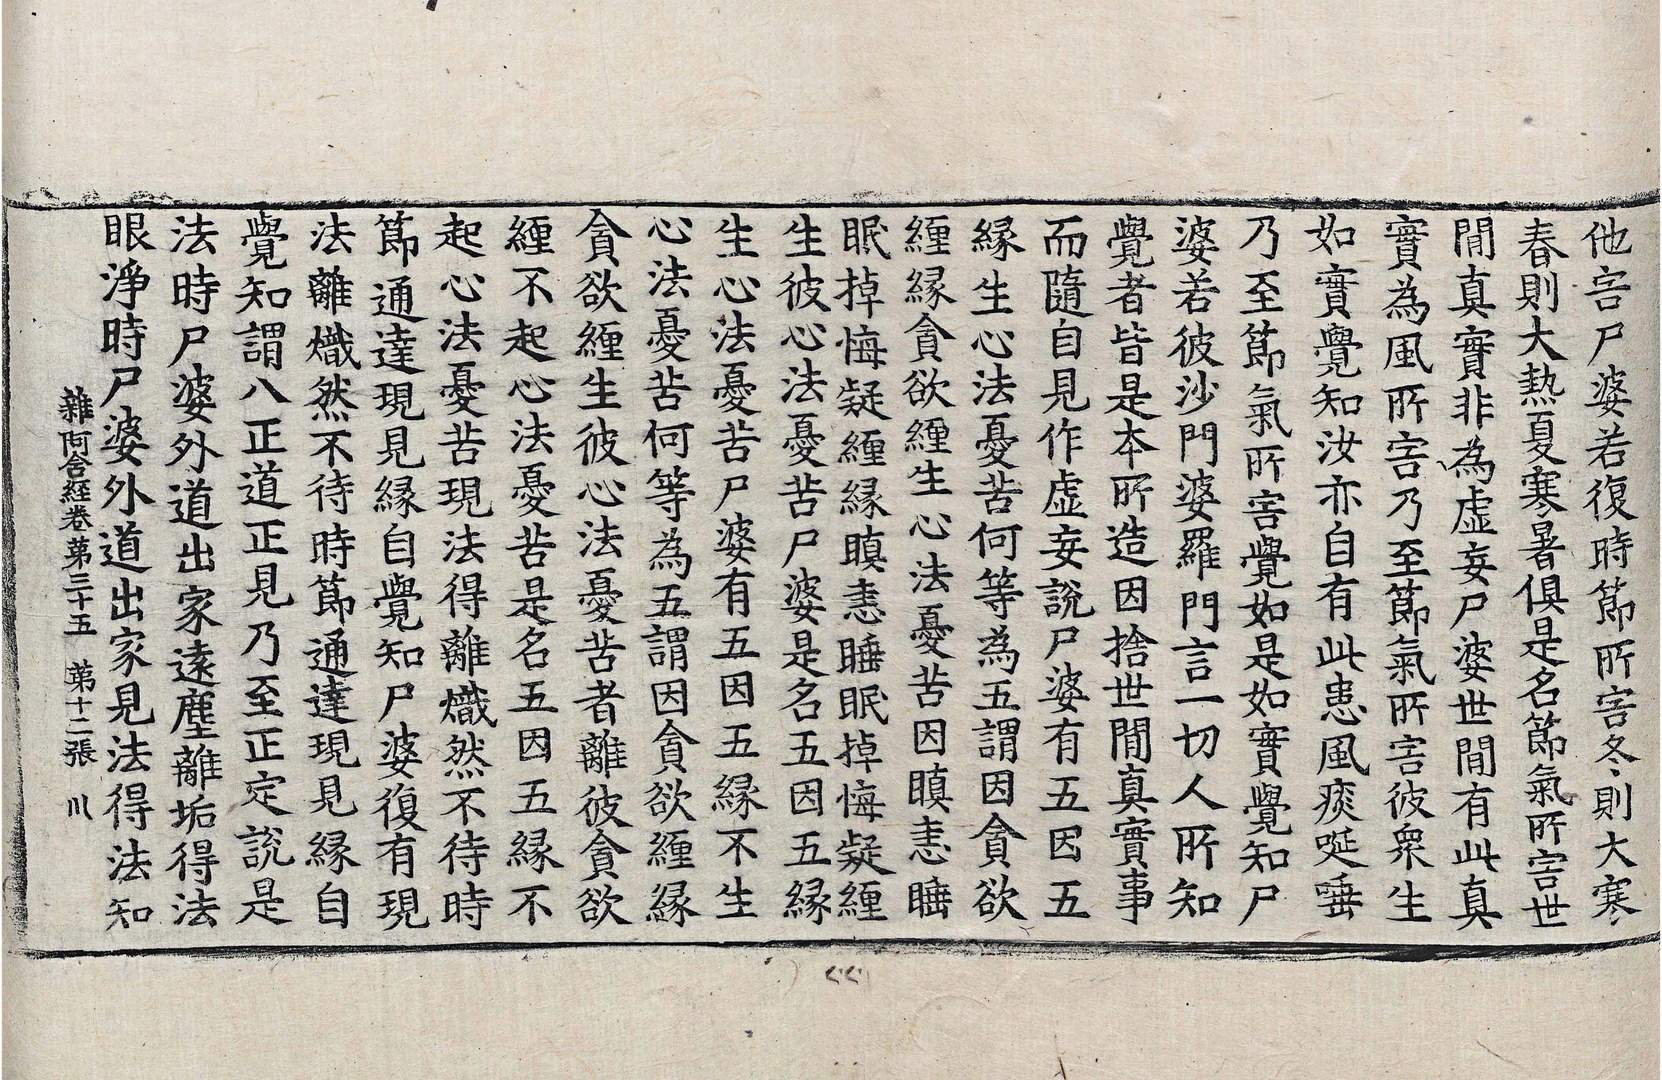 他害尸婆若復時節所害冬則大寒
春則大熱夏寒暑俱是名節氣所害世
間真實非為虛妄尸婆世間有此真
實為風所害乃至節氣所害彼衆生
如實覺知汝亦自有此患風痰唌唾
乃至節氣所害覺如是如實覺知尸
婆若彼沙門婆羅門言一切人所知
覺者皆是本所造因捨世間真實事
而隨自見作虛妄說尸婆有五因五
緣生心法憂苦何等為五謂因貪欲
纏緣貪欲纏生心法憂苦因瞋恚睡
眠掉悔疑纏緣瞋恚睡眠掉悔疑纏
生彼心法憂苦尸婆是名五因五緣
生心法憂苦尸婆有五因五緣不生
心法憂苦何等為五謂因貪欲纏緣
貪欲纏生彼心法憂苦者離彼貪欲
纏不起心法憂苦是名五因五緣不
起心法憂苦現法得離熾然不待時
節通達現見緣自覺知尸婆復有現
法離熾然不待時節通達現見緣自
覺知謂八正道正見乃至正定說是
法時尸婆外道出家遠塵離垢得法
眼淨時尸婆外道出家見法得法知
雜阿含經卷第三十五 第十二張 川